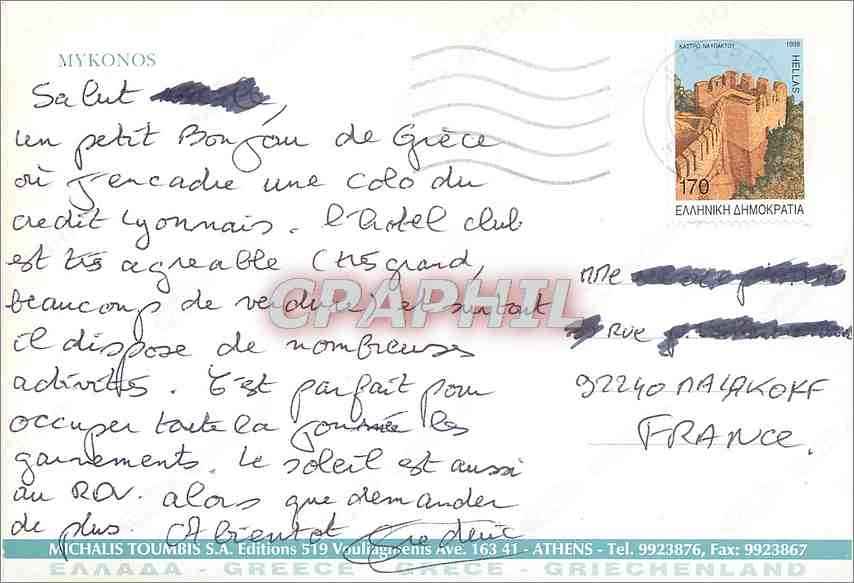 MYKONOS
Salut
un petit Bonjour de Grèce
où j'encadre une colo du
credit Lyonnais. l'hotel club
est très agreable (très grand,
beaucoup de verdure) et surtout
il dispose de nombreuses
activités. C'est parfait pour
occuper toute la journée les
garnements. Le soleil est aussi
au RDV. alors que demander
de plus. A bientot
ΚΑΣΤΡΟ ΝΑΥΠΑΚΤΟΥ 1998
HELLAS
170
ΕΛΛΗΝΙΚΗ ΔΗΜΟΚΡΑΤΙΑ
Mme
Rue
92240 MALAKOFF
FRANCE.
CPAPHIL
MICHALIS TOUMBIS S.A. Editions 519 Vouliagmenis Ave. 163 41 - ATHENS - Tel. 9923876, Fax: 9923867
ΕΛΛΑΔΑ - GREECE - GRECE - GRIECHENLAND